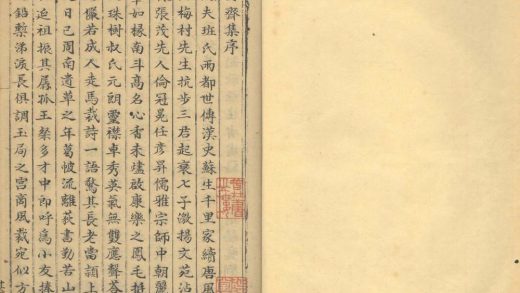 齋集序
夫班氏兩都世傳漢史蘇生千里家續唐風
梅村先生抗步三君起衰七子激揚文苑沾
張茂先人倫冠冕任彥昇儒雅宗師中朝
如標南斗高名心香未燼啟康樂之鳳毛挺
珠樹叔氏元朗靈襟卓秀英氣無雙應聲荅
儼若成人走馬裁詩一語驚其長老當頷上
日已周南遺草之年葛帔流離荻書勤苦山
近祖振其孱孤王粲多才中郎呼為小友捧
鉛槧弟長俱調玉局之宮商風裁宛似方